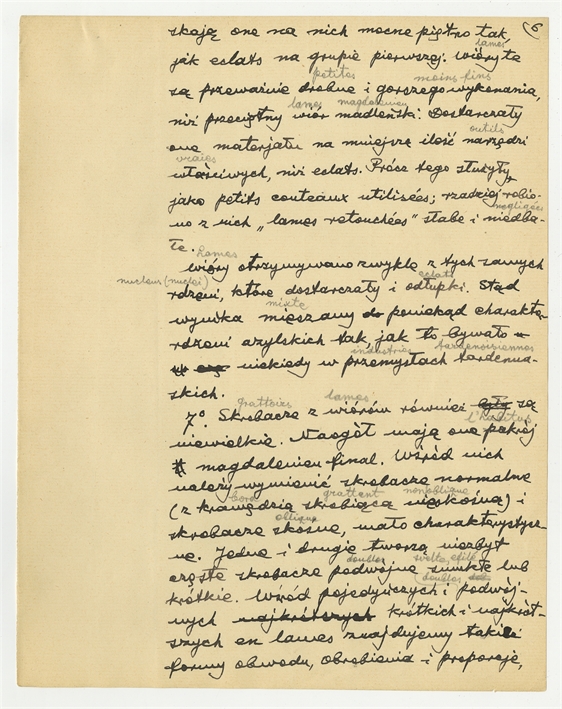 6
skają one na nich mocne piętno tak,
lames
jak eclats na grupie pierwszej. Wióry te
petites moins fins
są przeważnie drobne i gorszego wykonania,
lames magdalenien
niż przeciętny wiór madleński. Dostarczały
outils
one materjału na mniejszą ilość narzędzi
vraies
właściwych, niż eclats. Prócz tego służyły,
jako petits couteaux utilisées; rzadziej robio-
negligées
no z nich „lames retouchées" słabe i niedba-
łe.
Lames
Wióry otrzymywano zwykle z tych samych
nucleus (nuclei) eclats
rdzeni, które dostarczały i odłupki. Stąd
mixte
wynika mieszany do poniekąd charakte-
rdzeni azylskich tak, jak to bywało
industries tardenoisiennes
niekiedy w przemysłach tardenua-
skich.
grattoirs lames
7° Skrobacze z wiórów również są
l'habitus
niewielkie. Naogół mają one pokrój
magdalenien final. Wśród nich
należy wymienić skrobacze normalne
bord grattant nonoblique
(z krawędzią skrobiącą nieskośną) i
oblique
skrobacze skośne, mało charakterystycz-
ne. Jedne i drugie tworzą niezbyt
doubles svelte, effilé
częste skrobacze podwójne smukłe lub
doubles
krótkie. Wśród pojedyńczych i podwój-
nych najkrótszych krótkich i najkrót-
szych en lames znajdujemy takie
formy obwodu, obrobienia i proporcje,